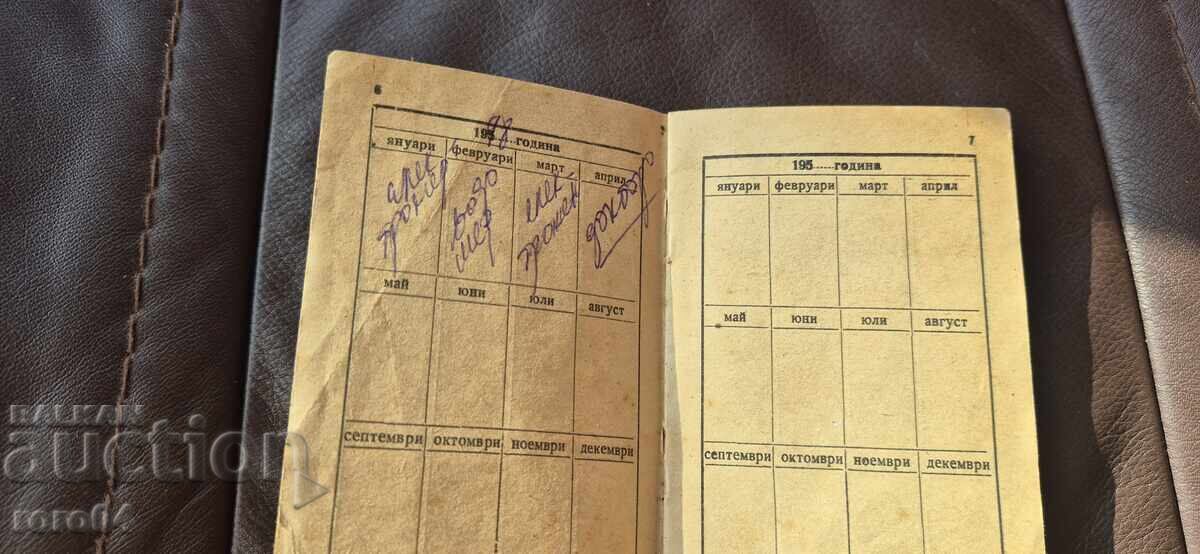 6
195 48 година
януари февруари март април
май юни юли август
септември октомври ноември декември
7
195..... година
януари февруари март април
май юни юли август
септември октомври ноември декември
BALKAN
auction
roro64